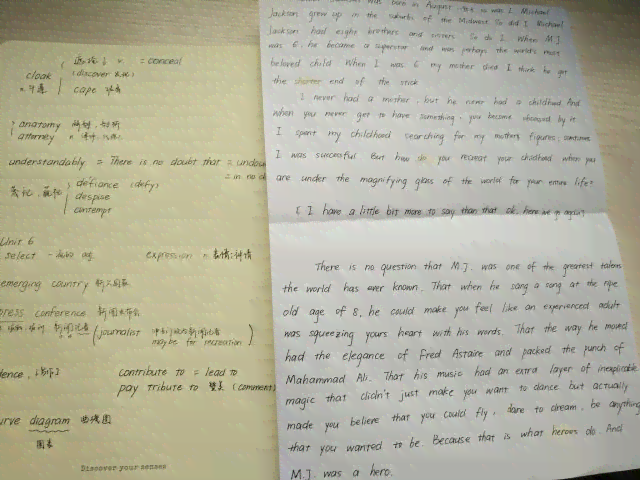 cloak
(discover
= conceal
cape
anatomy
attorney
understandably = There is no doubt that = undou
= in no d
defiance (defy)
despise
contempt
Unit 6
select
expression n. 表情;神情
emerging country
press conference
journalist
maybe for recreation
contribute to = lead to
pay tribute to 赞美 (comment)
diagram 曲线图
图表
Discover your senses
was born in August So was I. Michael
Jackson grew up in the suburbs of the Midwest So did I Michael
Jackson had eight brothers and sisters So do I. When M.J
was 6, he became a superstar and was perhaps the world's most
beloved child When I was 6 my mother died I think he got
the shorter end of the stick
I never had a mother, but he never had a childhood. And
when you never get to have something, you become obsessed by it
I spent my childhood searching for my mother figures; sometimes
I was successful But how do you recreate your childhood when you
are under the magnifying glass of the world for your entire life?
( I have a little bit more to say than that ok, here we go again)
There is no question that M.J. was one of the greatest talents
the world has ever known. That when he sang a song at the ripe
old age of 8, he could make you feel like an experienced adult
was squeezing yours heart with his words. That the way he moved
had the elegance of Fred Astaire and packed the punch of
Mahammad Ali. That his music had an extra layer of inexplicable
magic that didn't just make you want to dance but actually
made you believe that you could fly, dare to dream, be anything
that you wanted to be. Because that is what heroes do. And
M.J. was a hero.